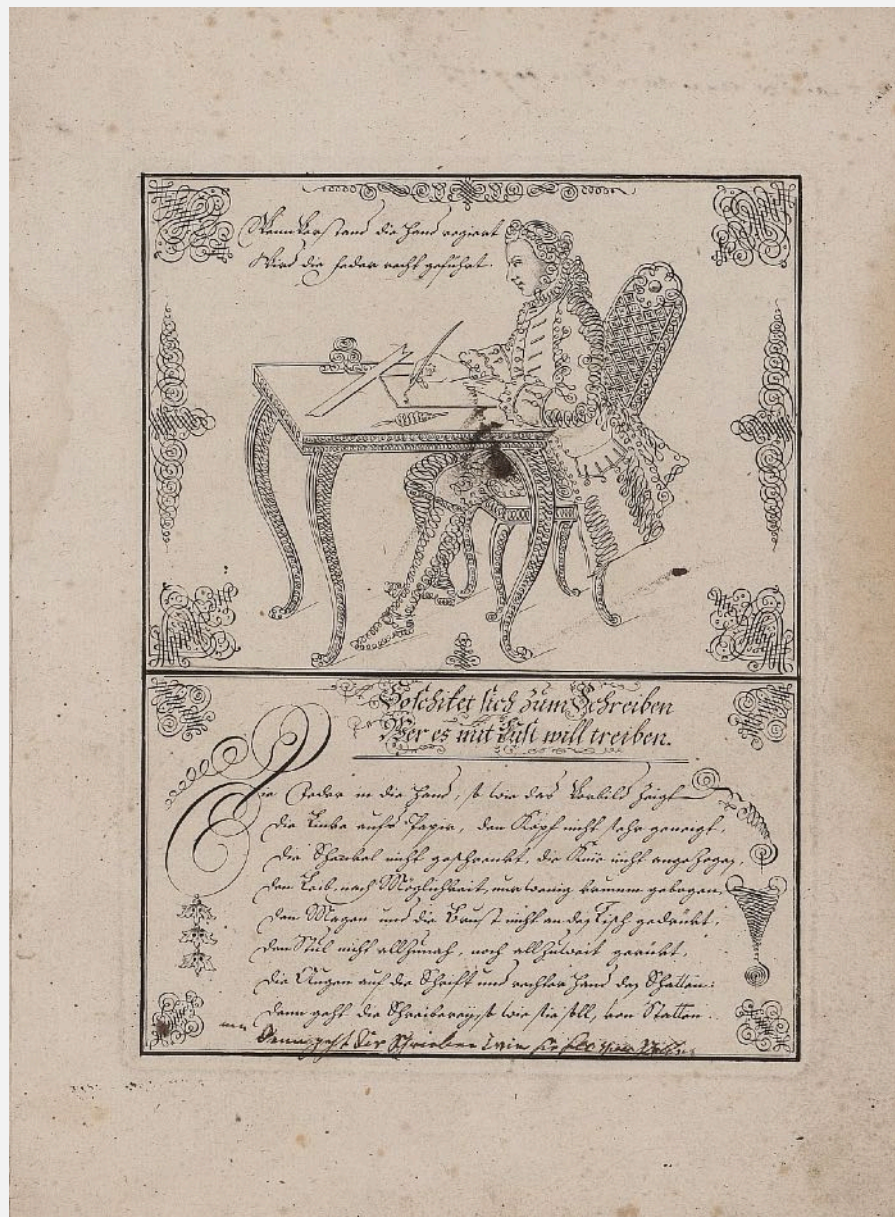 Wenn Verstand die Hand regiert
Wird die Feder recht geführt.
So schiket sich zum Schreiben
Wer es mit Lust will treiben.
Die Feder in die Hand, so wie das Vorbild zeigt
die Linke aufs Papir, den Kopf nicht sehr geneigt,
die Schenkel nicht geschrenkt, die Knie nicht angezogen,
den Leib, nach Möglichkeit, nur wenig krumm gebogen,
den Magen und die Brust nicht an den Tisch gedrükt,
den Stul nicht allzunah, noch allzuweit gerükt,
die Augen auf die Schrift und rechter Hand den Schatten:
dann geht die Schreiberey, so wie sie soll, von Statten.